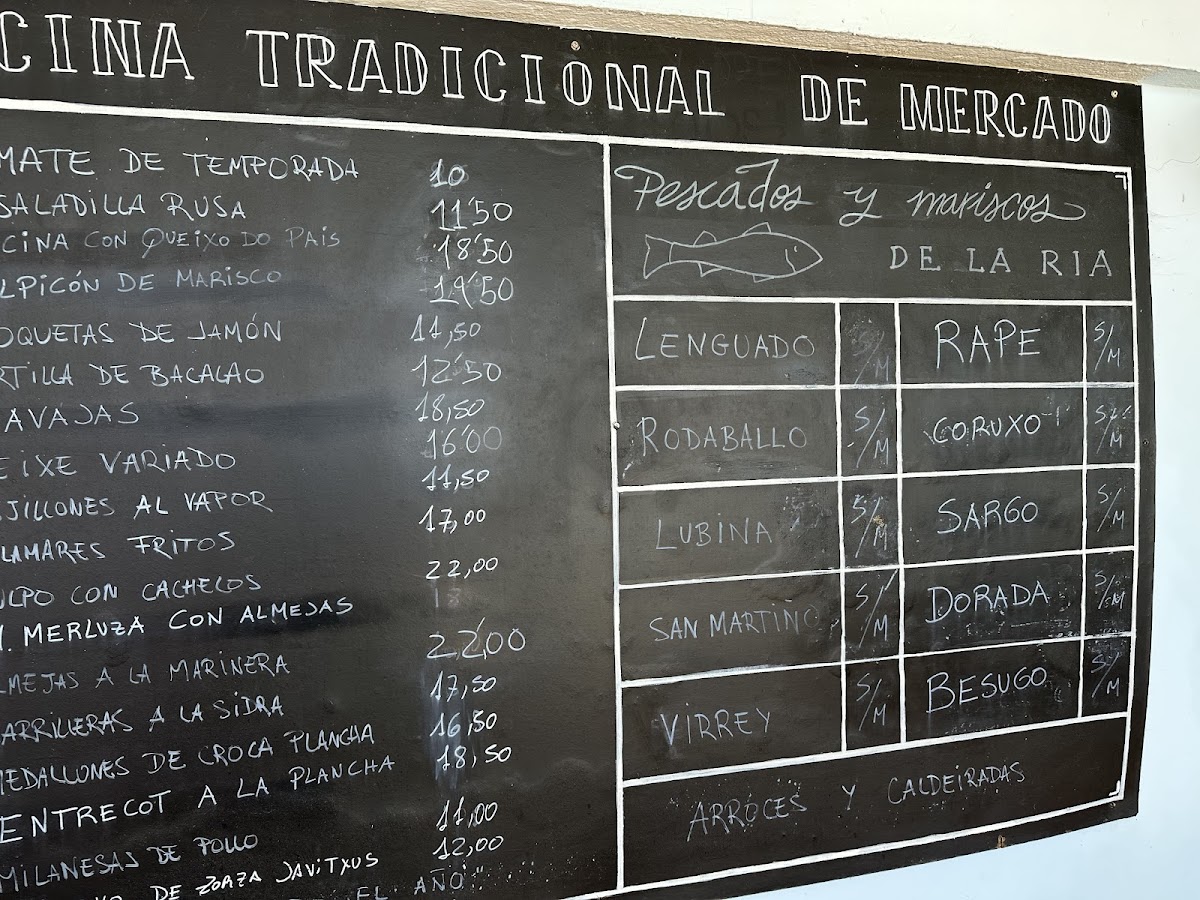 CINA TRADICIONAL DE MERCADO
MATE DE TEMPORADA 10
SALADILLA RUSA 11'50
CINA CON QUEIXO DO PAIS 18'50
LPICÓN DE MARISCO 19'50
OQUETAS DE JAMÓN 11,50
RTILLA DE BACALAO 12'50
AVAJAS 18,50
EIXE VARIADO 16'00
JILLONES AL VAPOR 11,50
LAMARES FRITOS 17,00
ULPO CON CACHELOS 22,00
MERLUZA CON ALMEJAS 18
LMEJAS A LA MARINERA 22,00
ARRILLERAS A LA SIDRA 17,50
MEDALLONES DE CROCA PLANCHA 16,50
ENTRECOT A LA PLANCHA 18,50
MILANESAS DE POLLO 11,00
DE ZORZA JAVITXUS 12,00
EL AÑO"
Pescados y mariscos
DE LA RIA
LENGUADO S/M RAPE S/M
RODABALLO S/M CORUXO S/M
LUBINA S/M SARGO S/M
SAN MARTIÑO S/M DORADA S/M
VIRREY S/M BESUGO S/M
ARROCES Y CALDEIRADAS